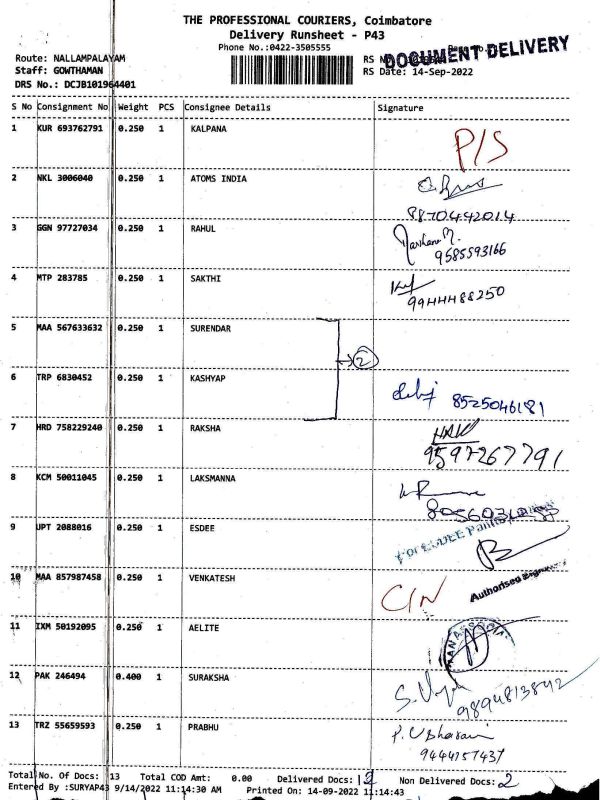 THE PROFESSIONAL COURIERS, Coimbatore
Delivery Runsheet - P43
Phone No.:0422-3505555
DOCUMENT DELIVERY
Route: NALLAMPALAYAM
Staff: GOWTHAMAN
RS Date: 14-Sep-2022
DRS No.: DCJB101964401
S No Consignment No Weight PCS Consignee Details Signature
1 KUR 693762791 0.250 1 KALPANA P/S
2 NKL 3006040 0.250 1 ATOMS INDIA
8870442014
3 GGN 97727034 0.250 1 RAHUL
9585593166
4 MTP 283785 0.250 1 SAKTHI
9944488250
5 MAA 567633632 0.250 1 SURENDAR
2
6 TRP 6830452 0.250 1 KASHYAP
8525046181
7 HRD 758229240 0.250 1 RAKSHA
9597267791
8 KCM 50011045 0.250 1 LAKSMANNA
9 UPT 2088016 0.250 1 ESDEE
For ESDEE
Authorised
10 MAA 857987458 0.250 1 VENKATESH C/N
11 IXM 50192095 0.250 1 AELITE
12 PAK 246494 0.400 1 SURAKSHA
9894813842
13 TRZ 55659593 0.250 1 PRABHU
9444157437
Total No. Of Docs: 13 Total COD Amt: 0.00 Delivered Docs: Non Delivered Docs: 2
Entered By :SURYAP43 9/14/2022 11:14:30 AM Printed On: 14-09-2022 11:14:43